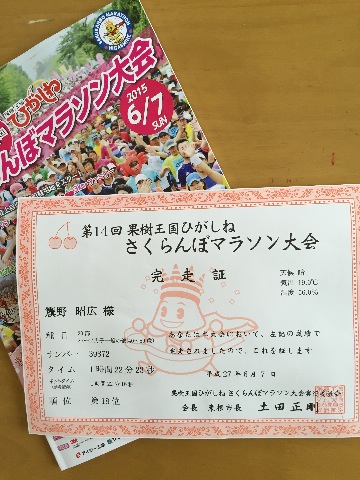 ひがしね
さくらんぼマラソン大会
2015
6/7
SUN
第14回 果樹王国ひがしね
さくらんぼマラソン大会
完走証
天候 晴
気温 19.0℃
湿度 56.0%
昭広 様
種目
ナンバー 39372
タイム 1時間22分23秒
順位 第18位
あなたは本大会において、左記の成績で
完走されましたので、これを証します
平成27年6月7日
果樹王国ひがしね さくらんぼマラソン大会実行委員会
会長 東根市長 土田正剛